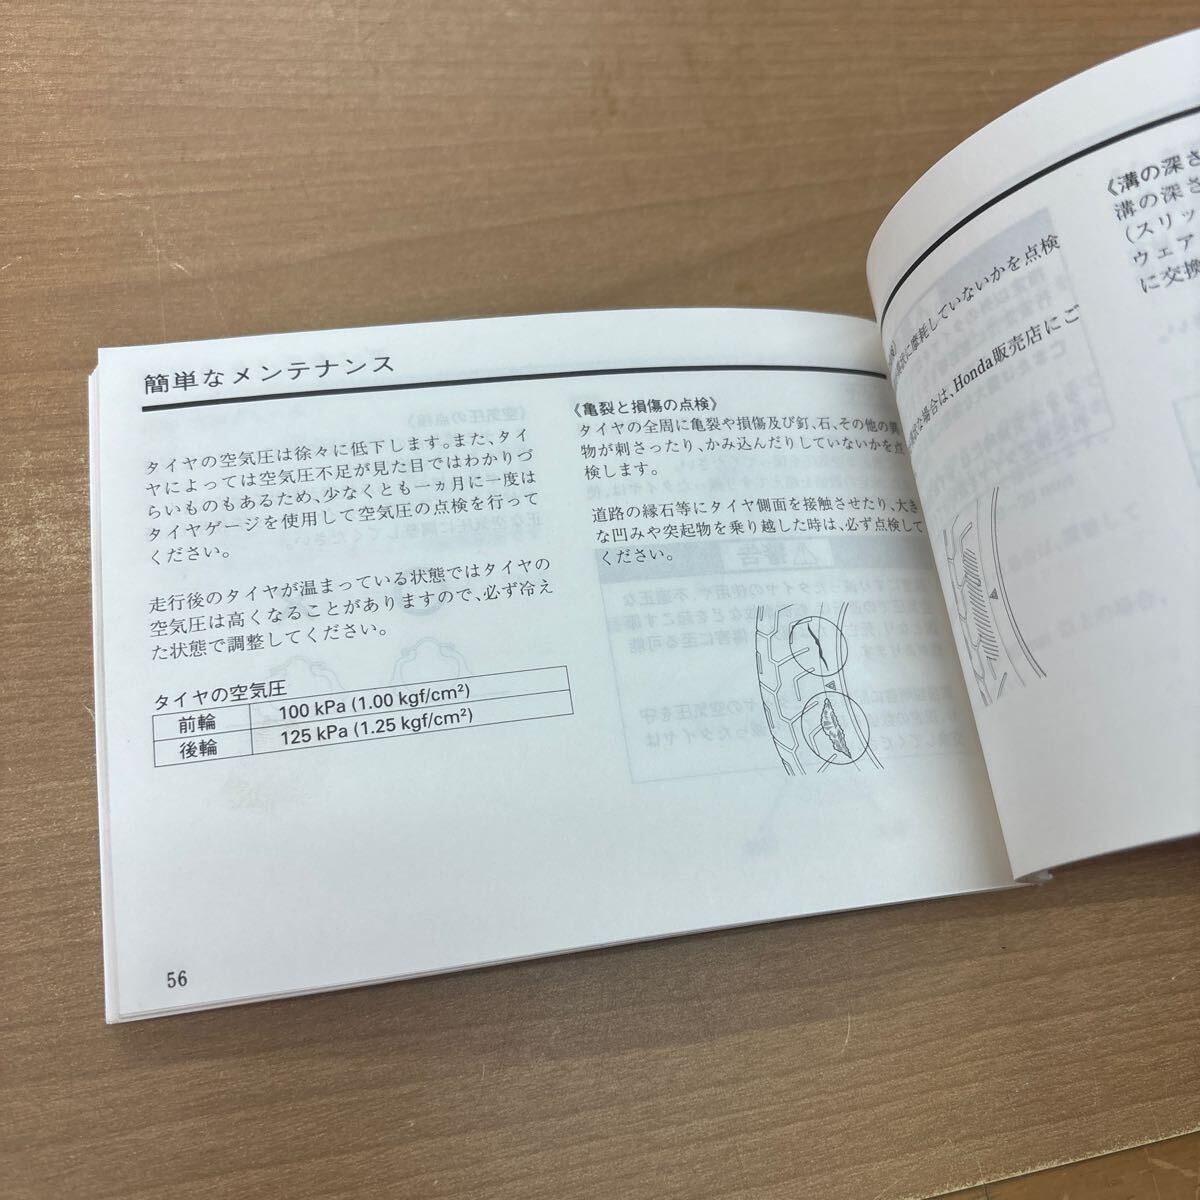 簡単なメンテナンス
タイヤの空気圧は徐々に低下します。また、タイ
ヤによっては空気圧不足が見た目ではわかりづ
らいものもあるため、少なくとも一ヵ月に一度は
タイヤゲージを使用して空気圧の点検を行って
ください。
走行後のタイヤが温まっている状態ではタイヤの
空気圧は高くなることがありますので、必ず冷え
た状態で調整してください。
タイヤの空気圧
前輪 100 kPa (1.00 kgf/cm²)
後輪 125 kPa (1.25 kgf/cm²)
《亀裂と損傷の点検》
タイヤの全周に亀裂や損傷及び釘、石、その他の異
物が刺さったり、かみ込んだりしていないかを点
検します。
道路の縁石等にタイヤ側面を接触させたり、大き
な凹みや突起物を乗り越した時は、必ず点検して
ください。
56
に摩耗していないかを点検
な場合は、Honda販売店にご
《溝の深さ
溝の深さ
(スリッ
ウェア
に交換